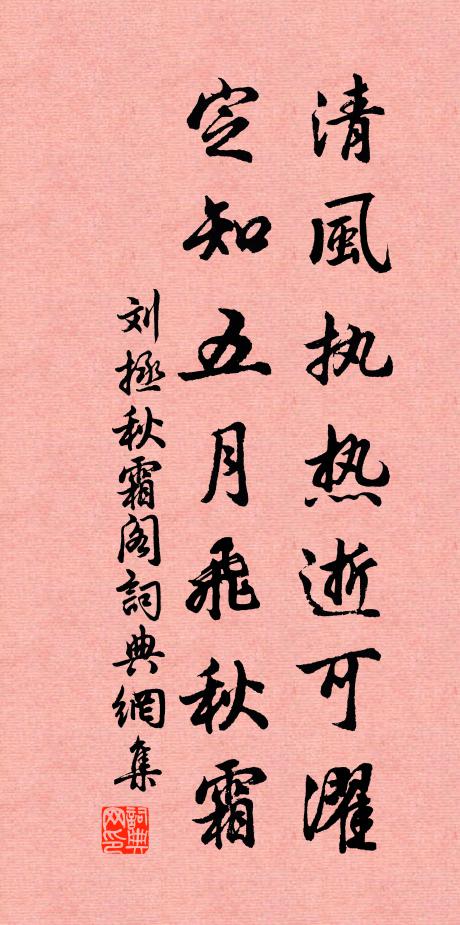 清風执热逝可濯
定知五月飛秋霜
刘拯秋霜阁詞典網集
詞典网印